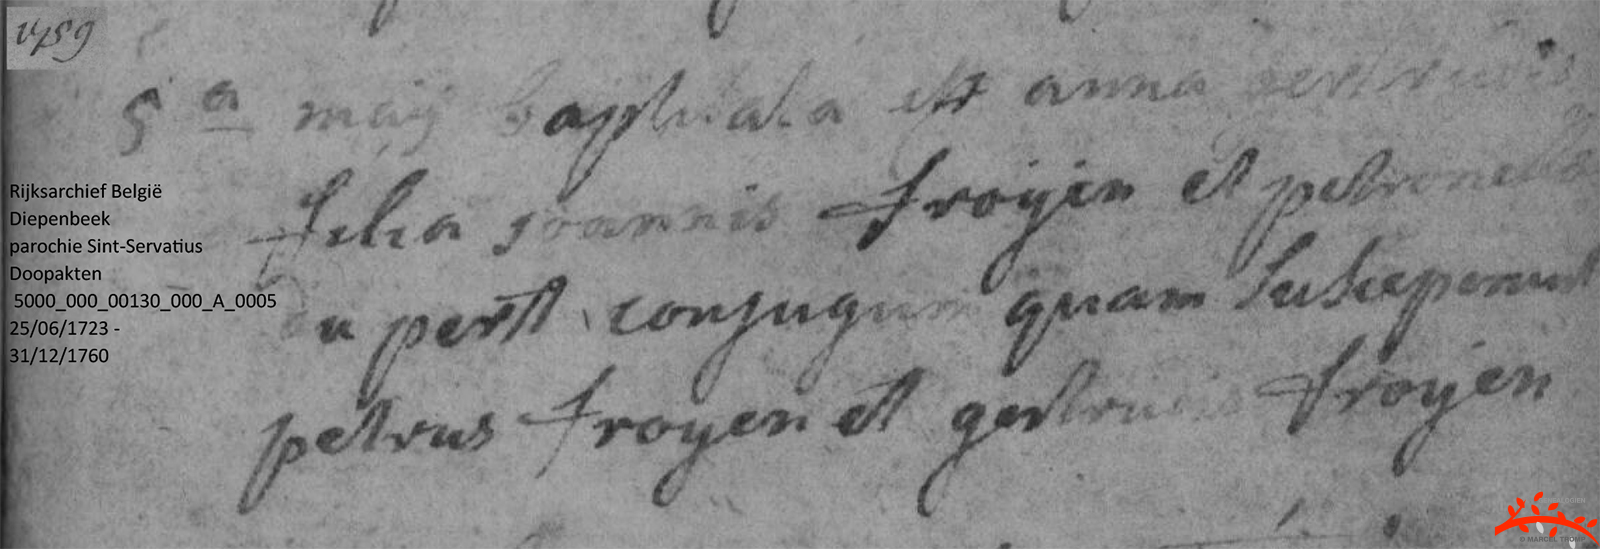 1759
5 a maij baptisata est anna gertrudis
filia joannis froijen et petronella
pert conjugum quam susceperunt
petrus froyen et gertrudis froijen
Rijksarchief België
Diepenbeek
parochie Sint-Servatius
Doopakten
5000_000_00130_000_A_0005
25/06/1723 -
31/12/1760
© MARCEL TROMP